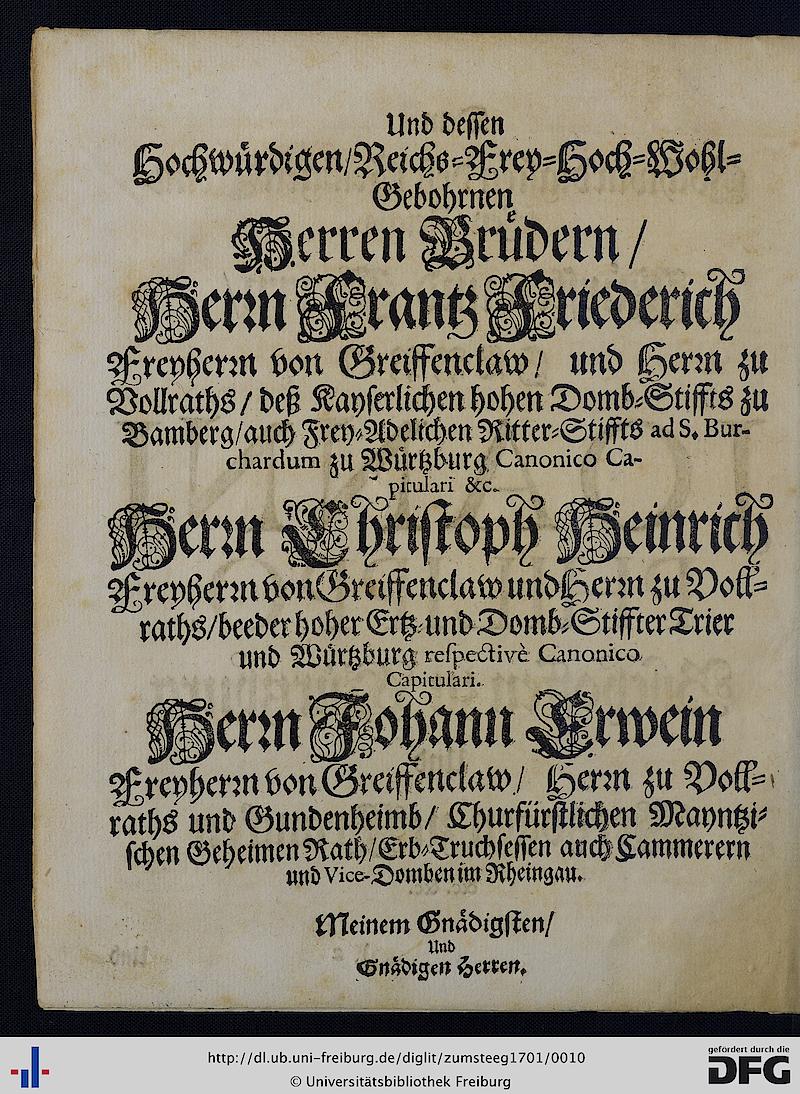 Und dessen
Hochwürdigen/Reichs-Frey-Hoch-Wohl-
Gebohrnen
Herren Brüdern/
Herrn Frantz Friederich
Freyherrn von Greiffenclaw/ und Herrn zu
Vollraths/ deß Kayserlichen hohen Domb-Stiffts zu
Bamberg/auch Frey-Adelichen Ritter-Stiffts ad S. Bur-
chardum zu Würtzburg Canonico Ca-
pitulari &c.
Herrn Christoph Heinrich
Freyherrn von Greiffenclaw und Herrn zu Voll-
raths/beeder hoher Ertz-und Domb-Stiffter Trier
und Würtzburg respectivè Canonico
Capitulari.
Herrn Johann Erwein
Freyherrn von Greiffenclaw/ Herrn zu Voll-
raths und Gundenheimb/ Churfürstlichen Mayntzi-
schen Geheimen Rath/Erb-Truchsessen auch Cammerern
und Vice-Domben im Rheingau.
Meinem Gnädigsten/
Und
Gnädigen Herren.
http://dl.ub.uni-freiburg.de/diglit/zumsteeg1701/0010
© Universitätsbibliothek Freiburg
gefördert durch die
DFG